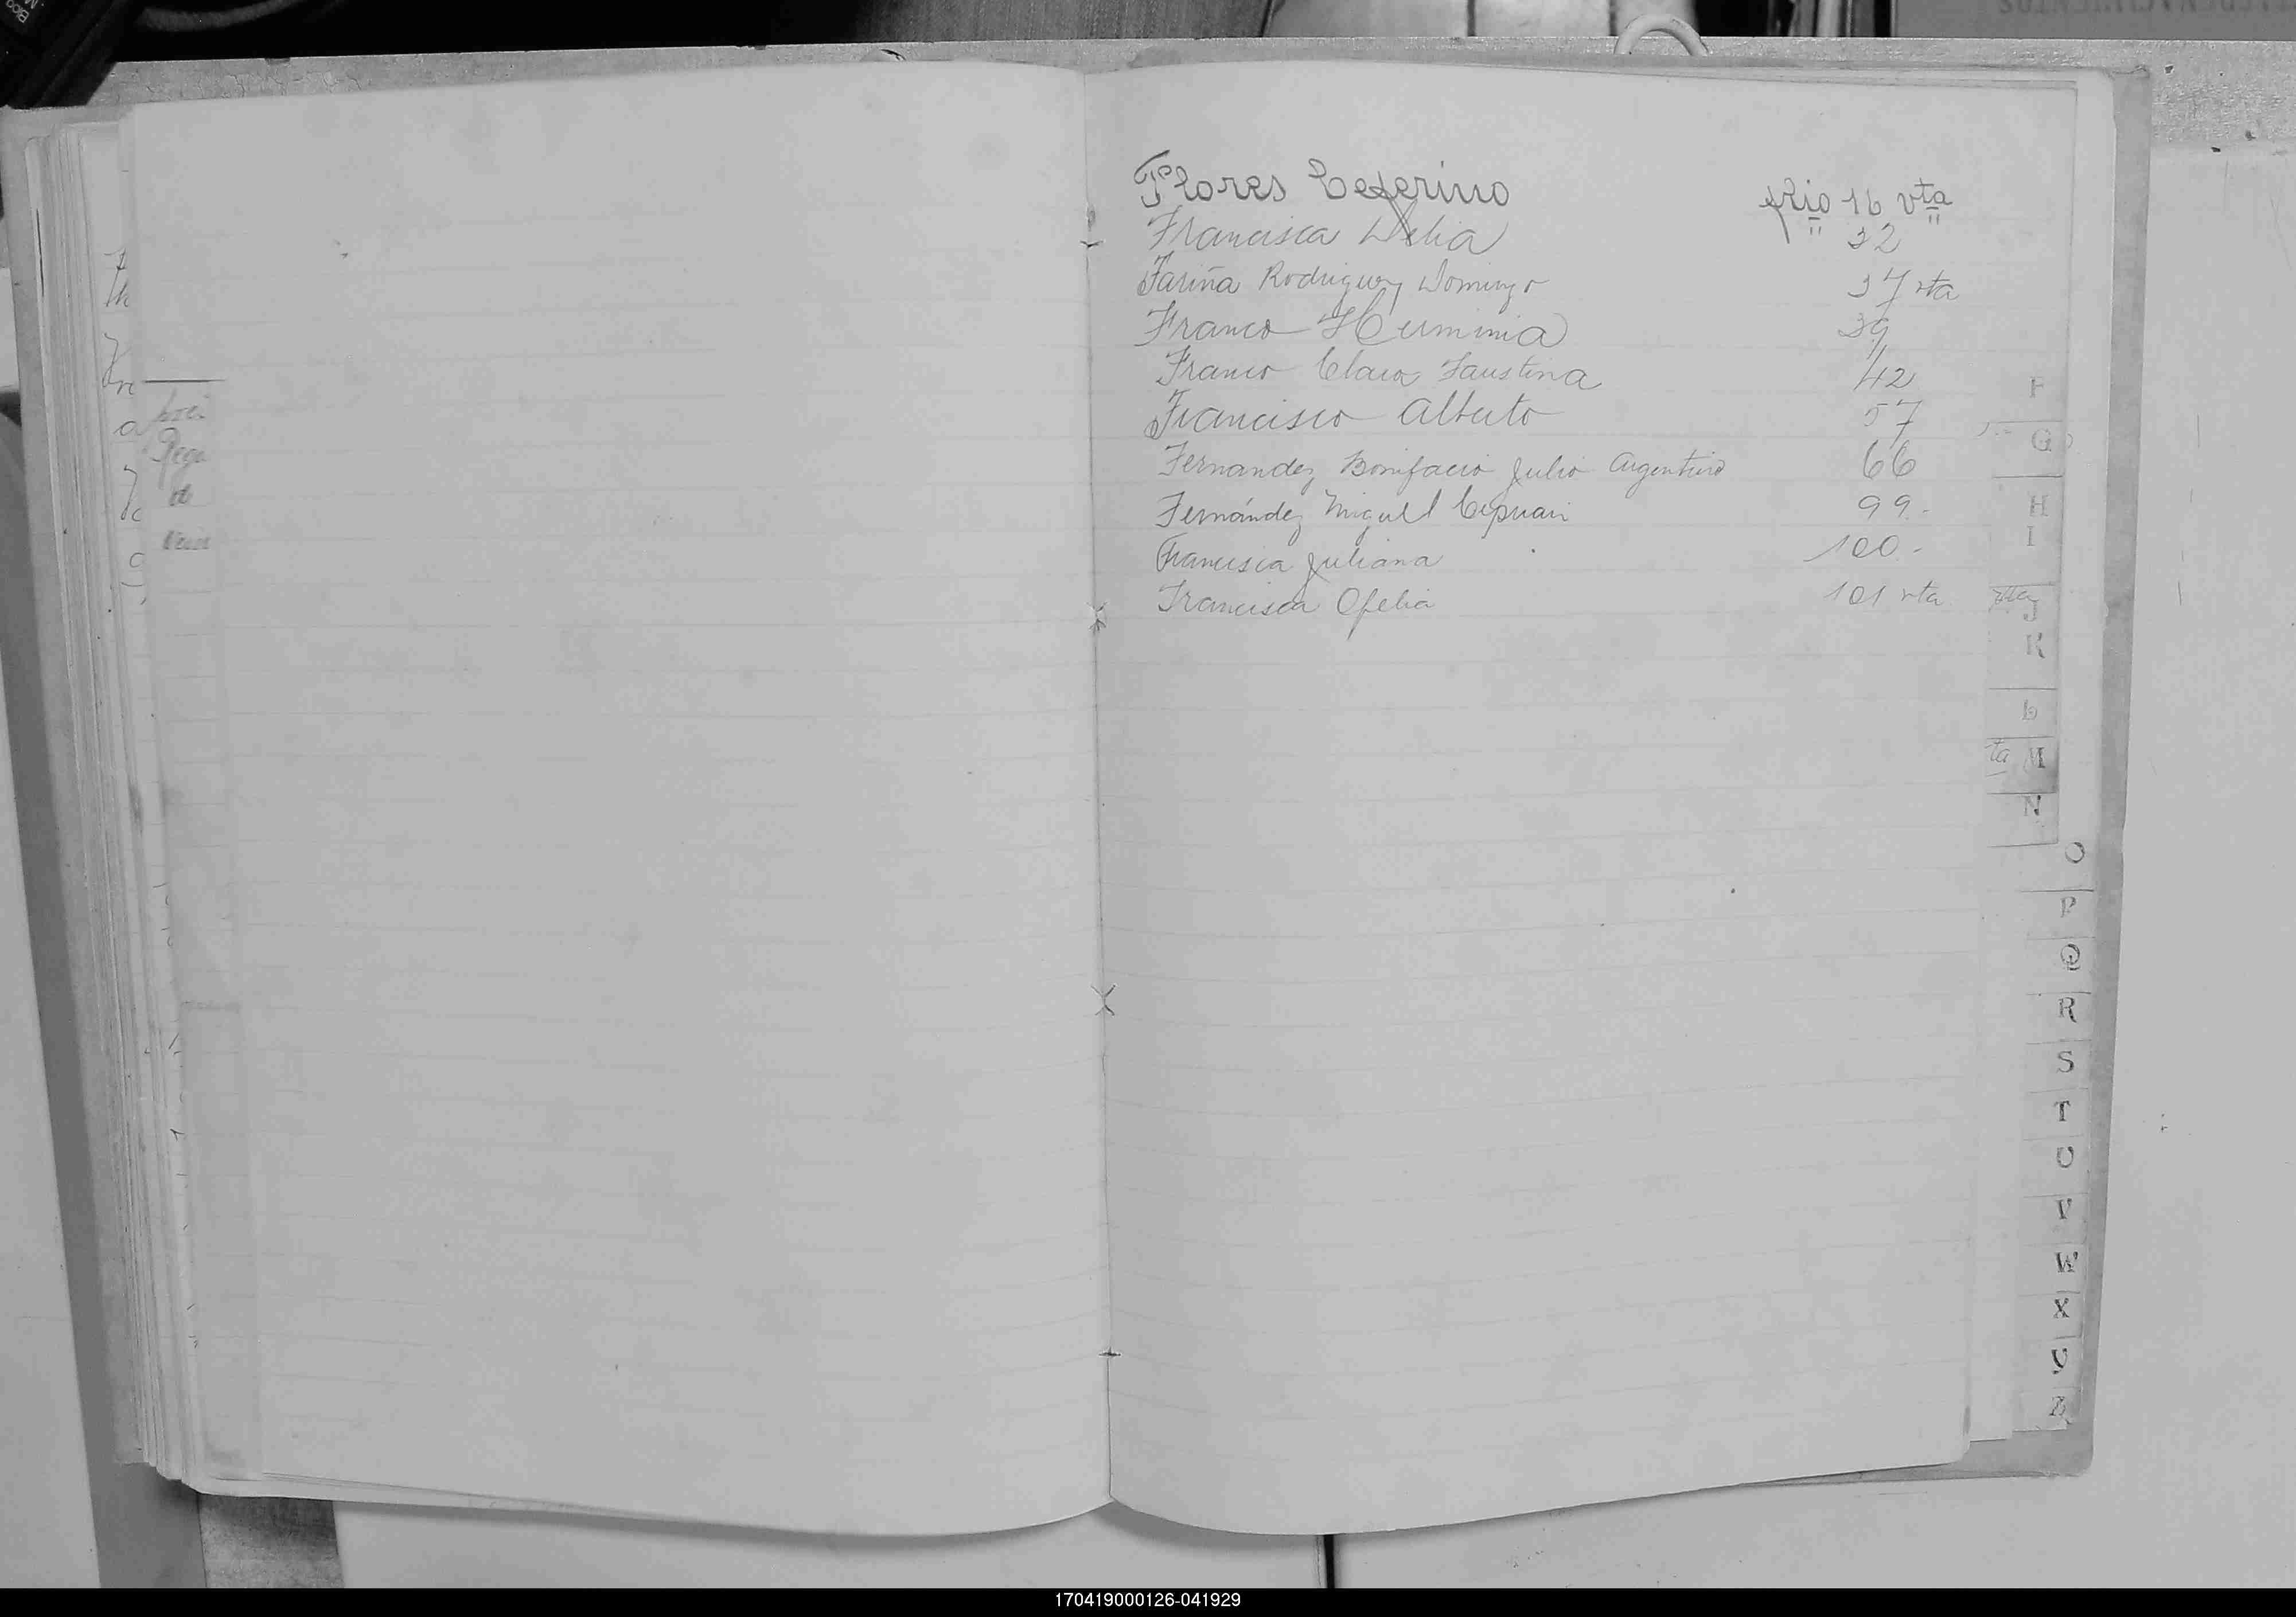 Flores Ceferino flio 16 vta
Francisca Delia " 32 "
Fariña Rodriguez Domingo 37 vta
Franco Herminia 39
Franco Clara Faustina 42
Francisco Alberto 57
Fernandez Bonifacio Julio Argentino 66
Fernández Miguel Ciprian 99.-
Francisca Juliana 100.-
Francisca Ofelia 101 vta
F
G
H
I
J
K
L
ta M
N
O
P
Q
R
S
T
U
V
W
X
Y
Z
170419000126-041929